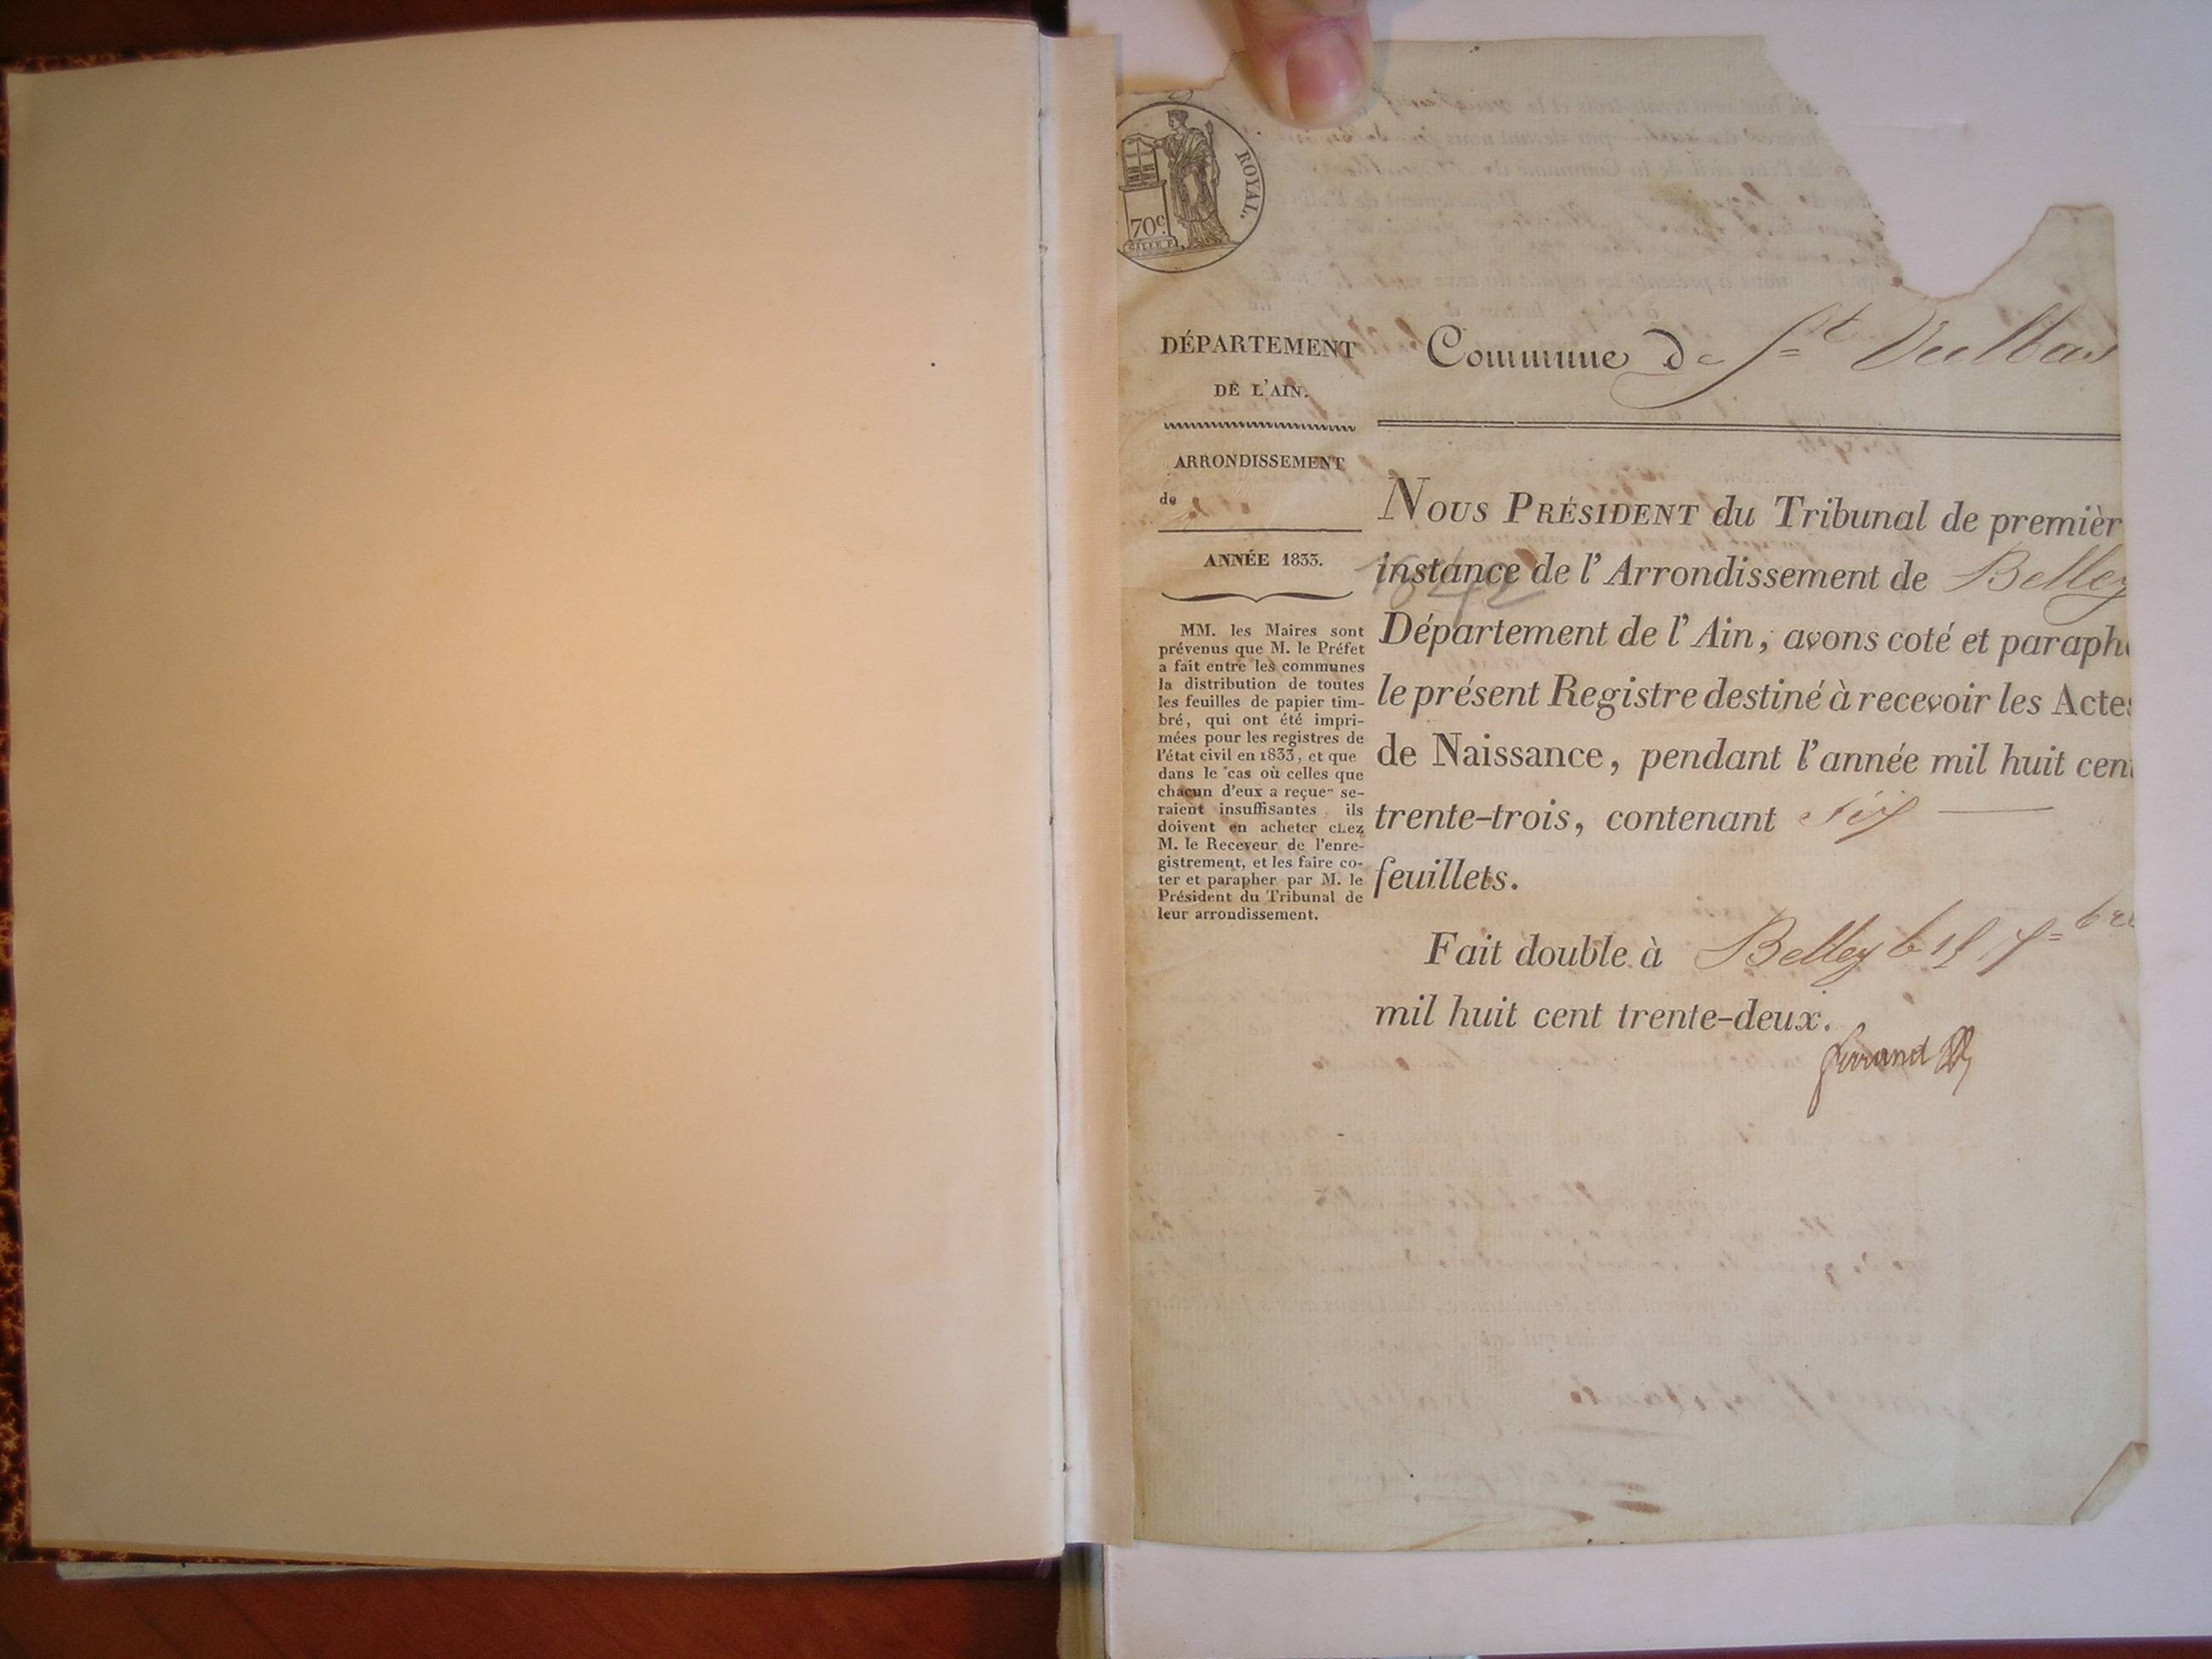 ROYAL.
70c.
GALLE F.
DÉPARTEMENT
DE L'AIN.
ARRONDISSEMENT
de
ANNÉE 1833.
MM. les Maires sont
prévenus que M. le Préfet
a fait entre les communes
la distribution de toutes
les feuilles de papier tim-
bré, qui ont été impri-
mées pour les registres de
l'état civil en 1833, et que
dans le cas où celles que
chacun d'eux a reçues se-
raient insuffisantes, ils
doivent en acheter chez
M. le Receveur de l'enre-
gistrement, et les faire co-
ter et parapher par M. le
Président du Tribunal de
leur arrondissement.
Commune de St Vulbas
NOUS PRÉSIDENT du Tribunal de premièr
instance de l'Arrondissement de Belley
Département de l'Ain, avons coté et paraph
le présent Registre destiné à recevoir les Actes
de Naissance, pendant l'année mil huit cent
trente-trois, contenant six
feuillets.
Fait double à Belley le 7bre
mil huit cent trente-deux.